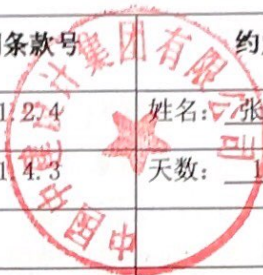 条款号 约
1.2.4 姓名: 张
1.4.3 天数: 1
中国中建设计集团有限公司